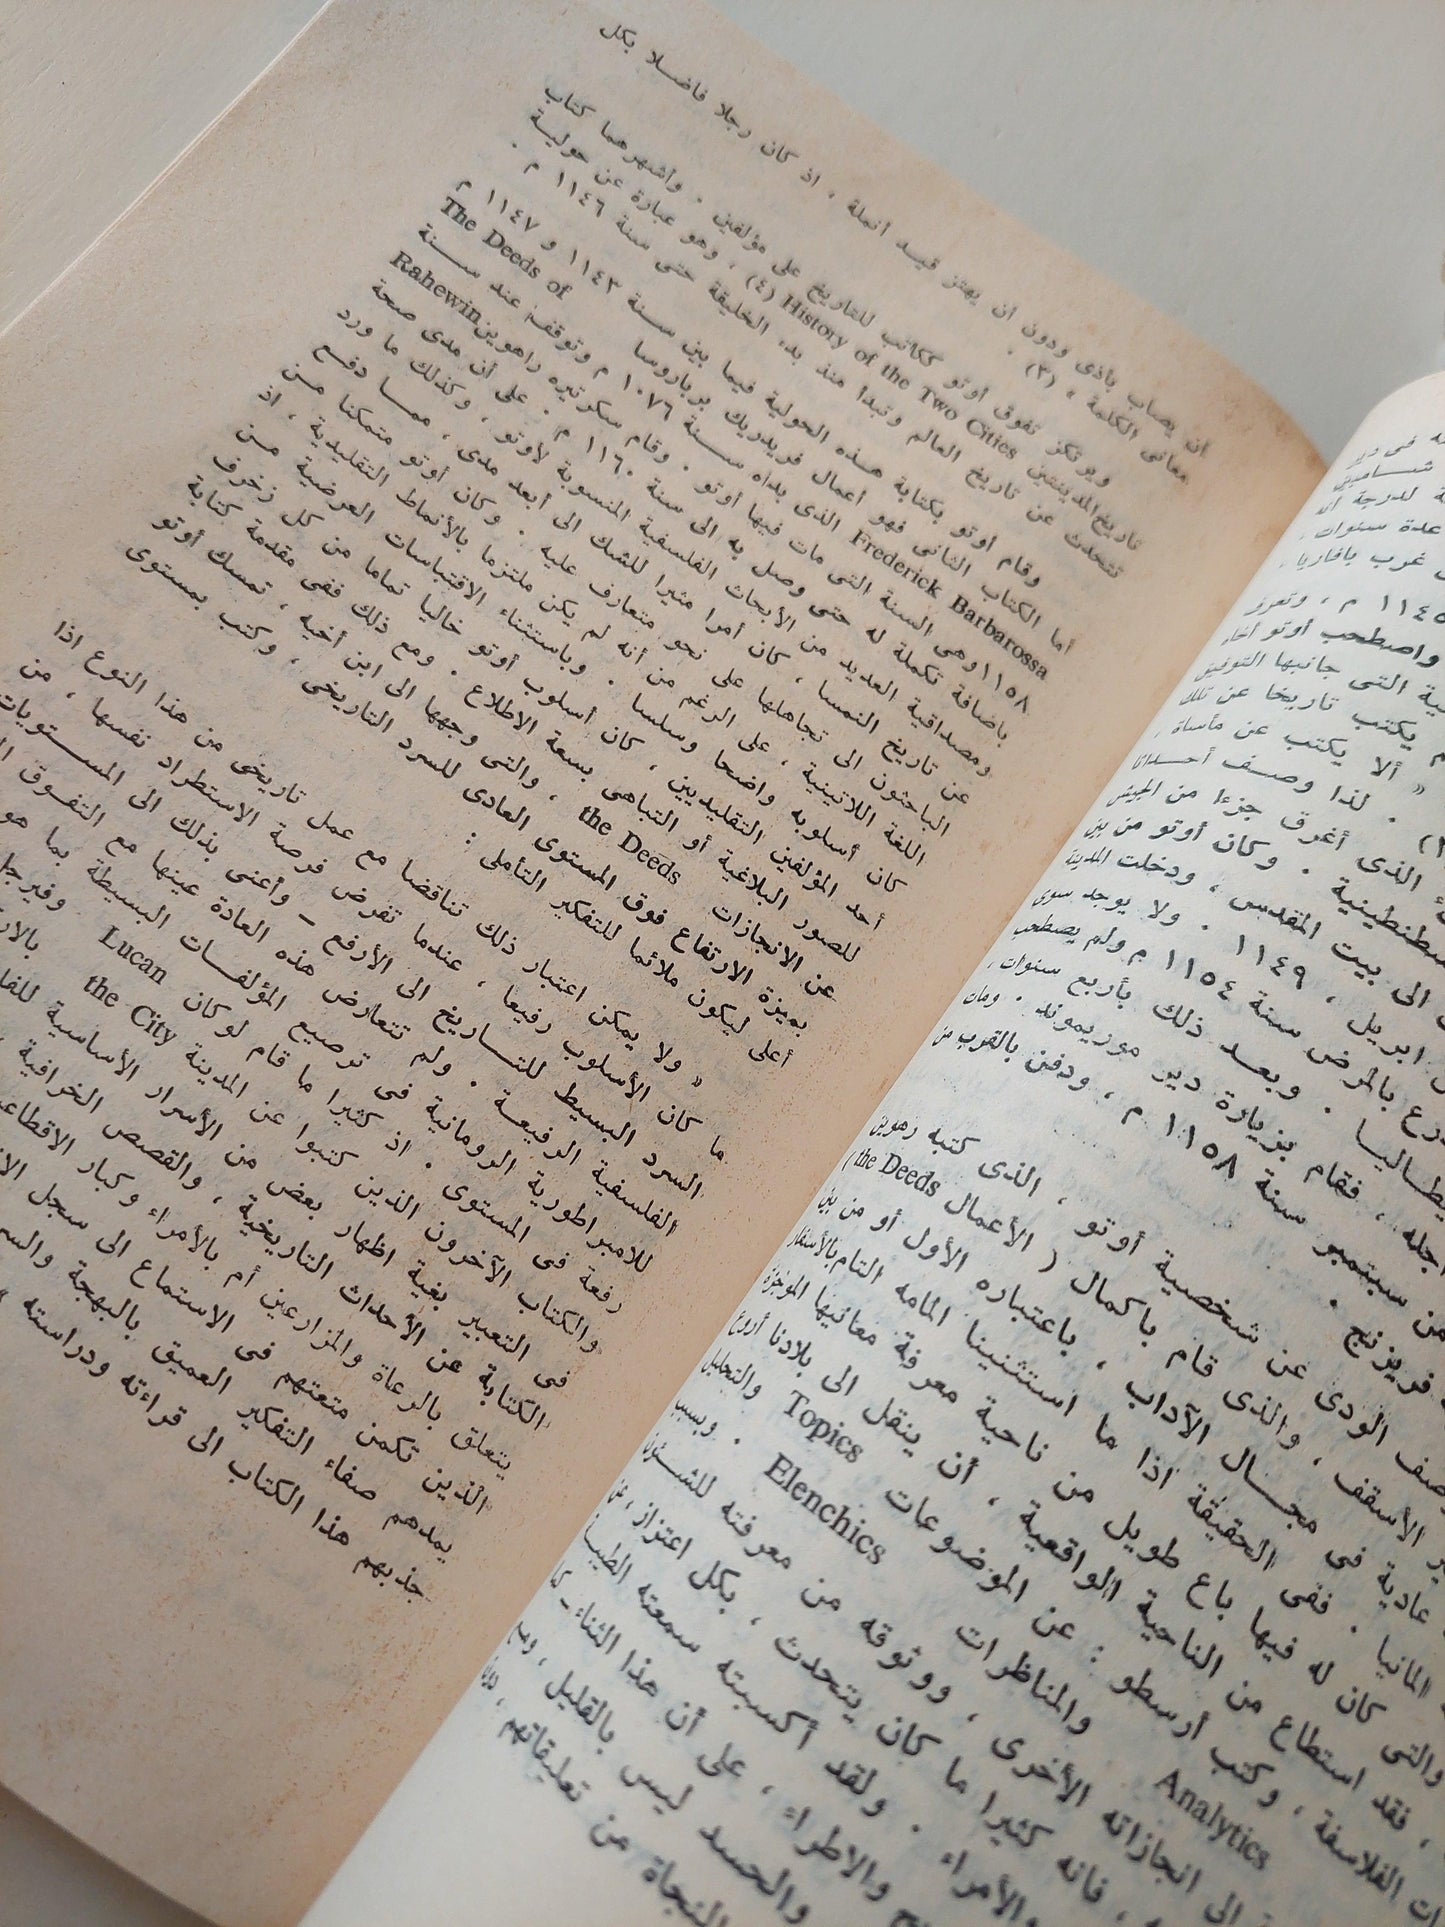 أن يصاب بأذى ودون أن يهتز قيد أنملة ، اذ كان رجلا فاضلا بكل
معانى الكلمة ، (٣) .
ويرتكز تفوق أوتو ككاتب للتاريخ على مؤلفين . وأشهرهما كتاب
تاريخ المدينتين History of the Two Cities (٤) ، وهو عبارة عن حولية
تتحدث عن تاريخ العالم وتبدأ منذ بدء الخليقة حتى سنة ١١٤٦ م .
وقام أوتو بكتابة هذه الحولية فيما بين سنة ١١٤٣ و ١١٤٧ م
أما الكتاب الثانى فهو أعمال فريدريك برباروسا The Deeds of
Frederick Barbarossa الذى بدأه سنة ١٠٧٦ م وتوقف عند سنة
١١٥٨ وهى السنة التى مات فيها أوتو . وقام سكرتيره راهوين Rahewin
باضافة تكملة له حتى وصل به الى سنة ١١٦٠ م . على أن مدى صحة
ومصداقية العديد من الأبحاث الفلسفية المنسوبة لأوتو ، وكذلك ما ورد
عن تاريخ النمسا ، كان أمرا مثيرا للشك الى أبعد مدى ، مما دفع
الباحثون الى تجاهلها على نحو متعارف عليه . وكان أوتو متمكنا من
اللغة اللاتينية ، على الرغم من أنه لم يكن ملتزما بالأنماط التقليدية ، اذ
كان أسلوبه واضحا وسلسا . وباستثناء الاقتباسات العرضية من
أحد المؤلفين التقليديين ، كان أسلوب أوتو خاليا تماما من كل زخرف
للصور البلاغية أو التباهى بسعة الاطلاع . ومع ذلك ففى مقدمة كتابة
عن الانجازات the Deeds ، والتى وجهها الى ابن أخيه ، تمسك أوتو
بميزة الارتفاع فوق المستوى العادى للسرد التاريخى ، وكتب بمستوى
أعلى ليكون ملائما للتفكير التأملى :
« ولا يمكن اعتبار ذلك تناقضا مع عمل تاريخى من هذا النوع اذا
ما كان الأسلوب رفيعا ، عندما تفرض فرصة الاستطراد نفسها ، من
السرد البسيط للتاريخ الى الأرفع – وأعنى بذلك الى المستويات
الفلسفية الرفيعة . ولم تتعارض هذه العادة عينها مع التفوق
للامبراطورية الرومانية فى ترصيع المؤلفات البسيطة بما هو
رفعة فى المستوى . اذ كثيرا ما قام لوكان Lucan وفيرجل
والكتاب الآخرون الذين كتبوا عن المدينة the City
فى التعبير بغية اظهار بعض من الأسرار الأساسية
الكتابة عن الأحداث التاريخية ، والقصص الخرافية
يتعلق بالرعاة والمزارعين أم بالأمراء وكبار
الذين تكمن متعتهم فى الاستماع الى سجل
يمدهم صفاء التفكير العميق بالبهجة
جذبهم هذا الكتاب الى قراءته ودراسته
فى دير
لدرجة أنه
عدة سنوات ،
غرب بافاريا .
م ، وتعزز
واصطحب أوتو أخاه
التى جانبها التوفيق
يكتب تاريخا عن تلك
« ألا يكتب عن مأساة ،
. لذا وصف أحداثا
الذى أغرق جزءا من الجيش
. وكان أوتو من بين
الى بيت المقدس ، ودخلت المدينة
ابريل ، ١١٤٩ . ولا يوجد سوى
بالمرض سنة ١١٥٤ م ولم يصطحب
. وبعد ذلك بأربع سنوات ،
، فقام بزيارة دير موريموند . ومات
من سبتمبر سنة ١١٥٨ م ، ودفن بالقرب من
فريزنج .
الودى عن شخصية أوتو ، الذى كتبه رهوين
الأسقف ، والذى قام باكمال ( الأعمال the Deeds )
عادية فى مجال الآداب ، باعتباره الأول أو من بين
المانيا . ففى الحقيقة اذا ما استثنينا المامه التام بالأسفار
والتى كان له فيها باع طويل من ناحية معرفة معانيها الموجزة
، فقد استطاع من الناحية الواقعية ، أن ينقل الى بلادنا أروع
الفلاسفة ، وكتب أرسطو : عن الموضوعات Topics والتحليل
Analytics والمناظرات Elenchics . وبسبب
الى انجازاته الأخرى ، ووثوقه من معرفته للشئون
، فانه كثيرا ما كان يتحدث ، بكل اعتزاز ، عن
والأمراء . ولقد أكسبته سمعته
والاطراء ، على أن هذا الثناء –
والحسد ليس بالقليل ، ومع
النجاة من تعليقاتهم ، دون